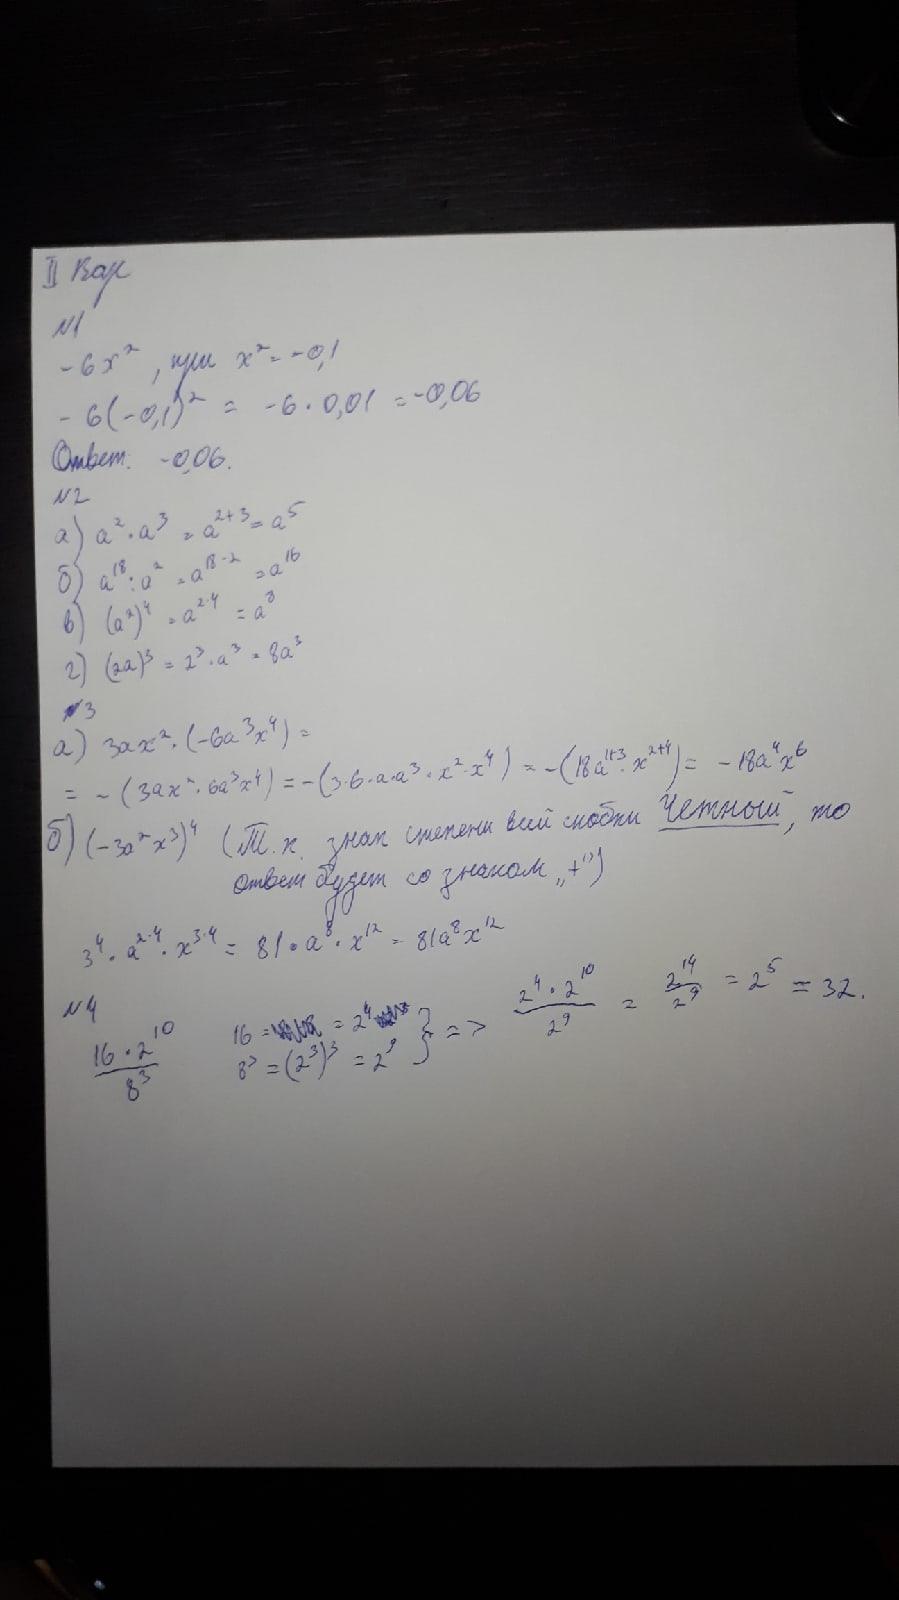 II Вар
№1
-6x², при x² = -0,1
-6(-0,1)² = -6·0,01 = -0,06
Ответ: -0,06.
№2
а) a²·a³ = a²⁺³ = a⁵
б) a¹⁸:a² = a¹⁸⁻² = a¹⁶
в) (a²)⁴ = a²·⁴ = a⁸
г) (2a)³ = 2³·a³ = 8a³
№3
а) 3ax²·(-6a³x⁴) =
= -(3ax²·6a³x⁴) = -(3·6·a·a³·x²·x⁴) = -(18a¹⁺³·x²⁺⁴) = -18a⁴x⁶
б) (-3a²x³)⁴ (Т.к. знак степени всей скобки Четный, то
ответ будет со знаком „+")
3⁴·a²·⁴·x³·⁴ = 81·a⁸·x¹² = 81a⁸x¹²
№4
16·2¹⁰/8³ 16 = 2⁴ 8³ = (2³)³ = 2⁹ } => 2⁴·2¹⁰/2⁹ = 2¹⁴/2⁹ = 2⁵ = 32.